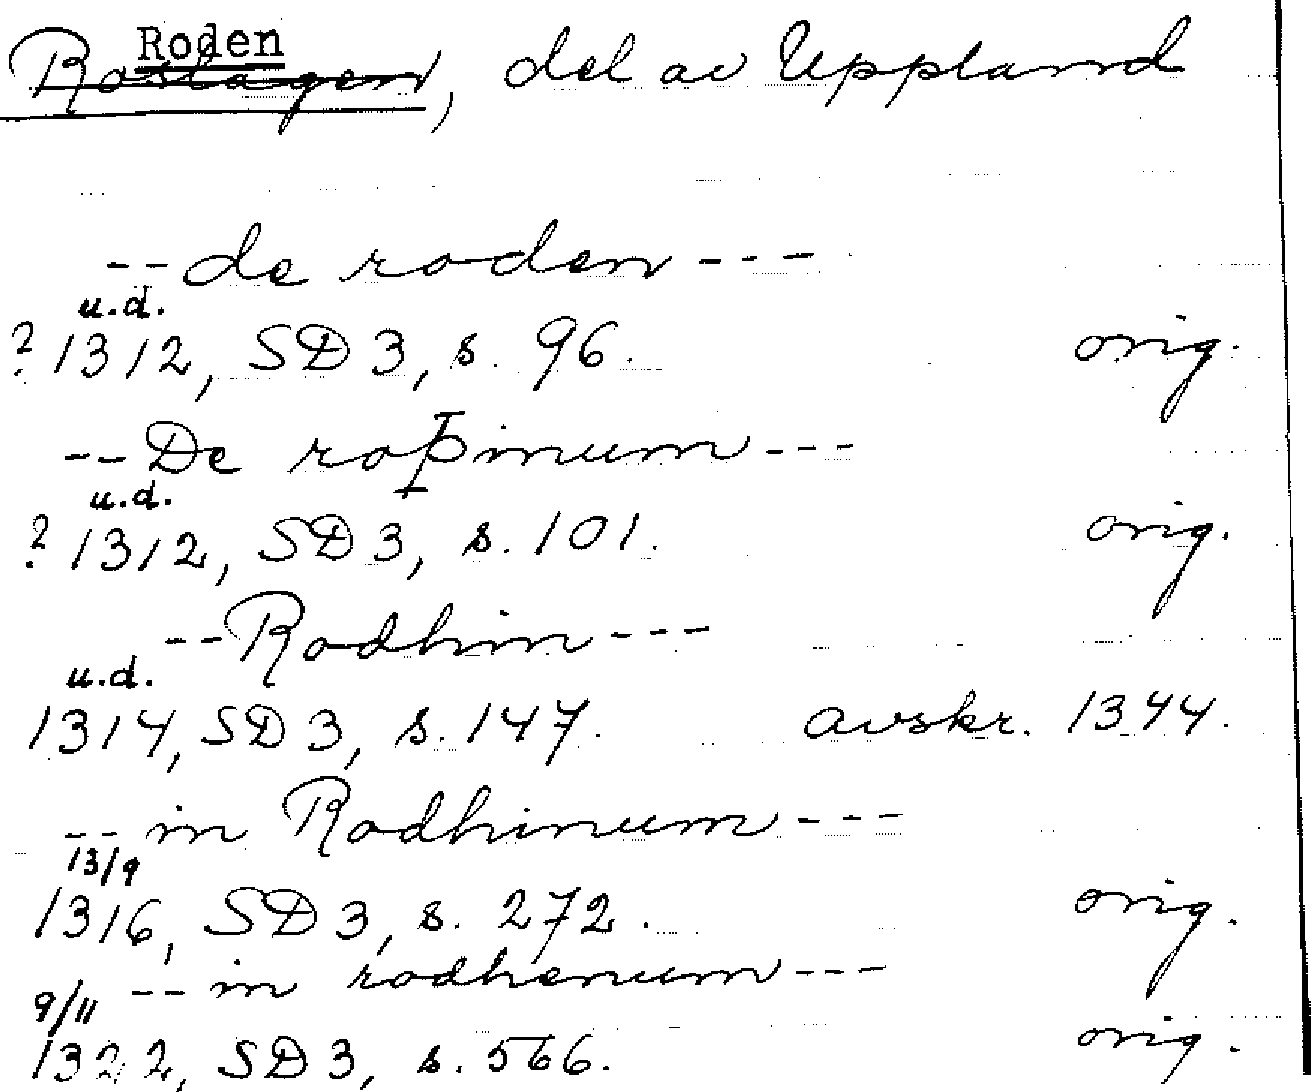 Roden
Roslagen, del av Uppland
-- de roden ---
u.d.
? 1312, SD 3, s. 96. orig.
-- De roþinum ---
u.d.
? 1312, SD 3, s. 101. orig.
-- Rodhin ---
u.d.
1314, SD 3, s. 147. avskr. 1344.
-- in Rodhinum ---
13/9
1316, SD 3, s. 272. orig.
-- in rodhenum ---
9/11
1322, SD 3, s. 566. orig.